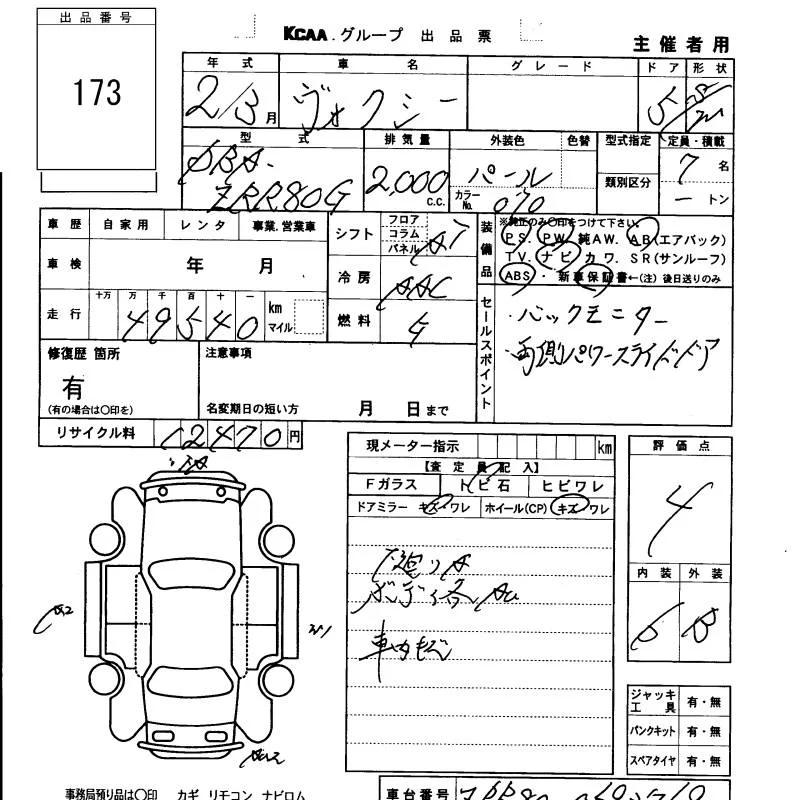 出品番号
173
KCAA.グループ 出品票
主催者用
年式 車名 グレード ドア 形状
2/3月 ヴォクシー 5
型式 排気量 外装色 色替 型式指定 定員・積載
DBA-
ZRR80G
2,000 C.C.
パール
カラーNo. 070
類別区分
7名
ートン
車歴 自家用 レンタ 事業.営業車
車検 年 月
走行 十万 万 千 百 十 一
49540 km マイル
シフト フロア コラム パネル
冷房 AAC
燃料 G
装備品
※純正のみ〇印をつけて下さい。
PS. PW. 純AW. AB(エアバック)
TV. ナビ カワ. SR(サンルーフ)
ABS・新車保証書←(注) 後日送りのみ
セールスポイント
・バックモニター
・両側パワースライドドア
修復歴 箇所
有
(有の場合は〇印を)
注意事項
名変期日の短い方 月 日まで
リサイクル料 12470円
現メーター指示 km
【査定員記入】
Fガラス トビ石 ヒビワレ
ドアミラー キズ・ワレ ホイール(CP) キズ・ワレ
下廻りA
ボディ各
車内
評価点
4
内装 外装
6 B
ジャッキ工具 有・無
パンクキット 有・無
スペアタイヤ 有・無
事務局預り品は〇印 カギ リモコン ナビロム
車台番号